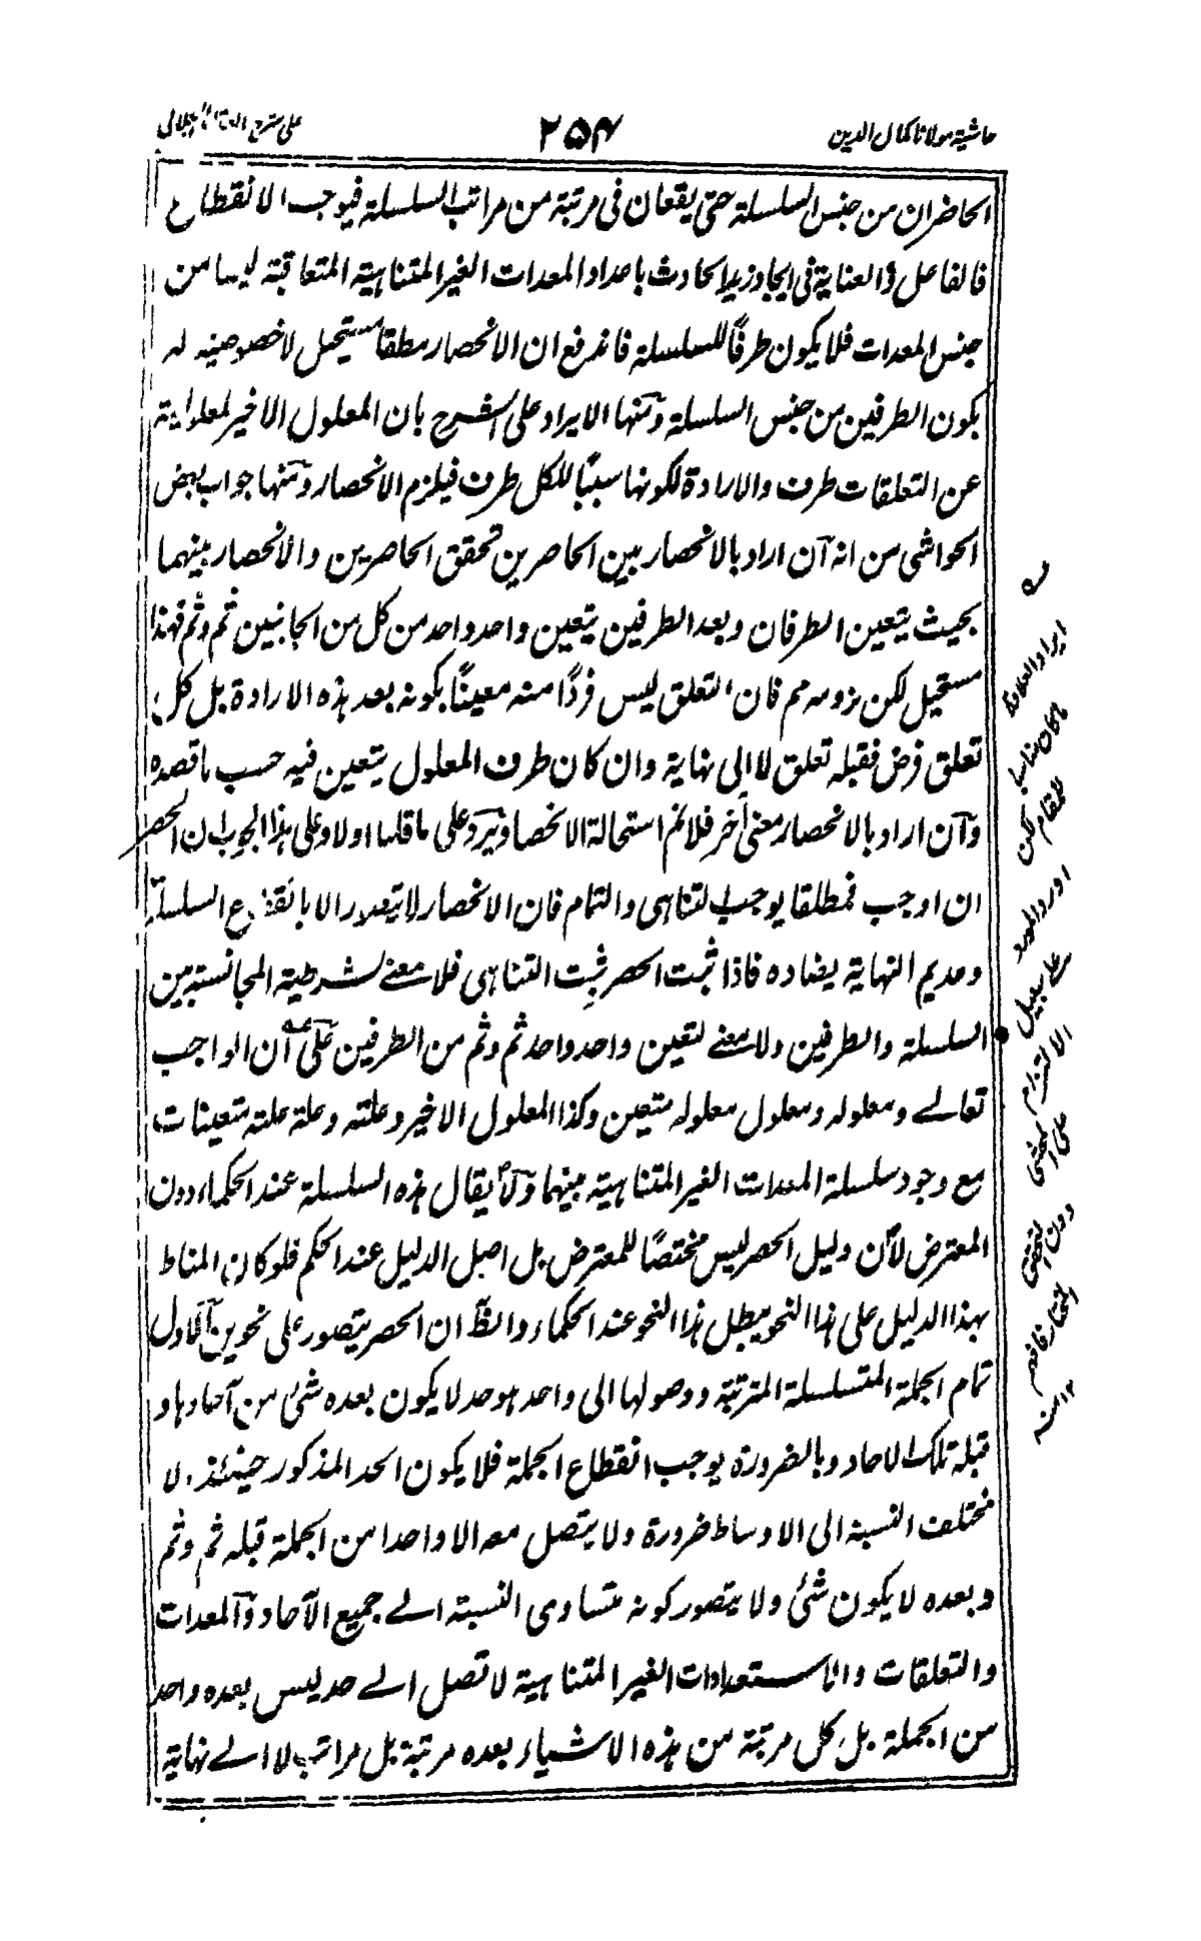 حاشية مولانا كمال الدين
٢٥٤
على شرح
الحاضران من جنس السلسلة حتى يقعان فى مرتبة من مراتب السلسلة فيوجب الانقطاع
فالفاعل والعناية فى ايجاد زيد الحادث باعداد المعدات الغير المتناهية المتعاقبة ليسا من
جنس المعدات فلا يكون طرفًا للسلسلة فاندفع ان الانحصار مطلقا مستحيل لا خصوصية له
بكون الطرفين من جنس السلسلة ومنها الايراد على الشرح بان المعلول الاخير لمعلوليته
عن التعلقات طرف والارادة لكونها سببًا للكل طرف فيلزم الانحصار ومنها جواب بعض
الحواشى من انه آن اراد بالانحصار بين الحاصرين تحقق الحاصرين والانحصار بينهما
بحيث يتعين الطرفان وبعد الطرفين يتعين واحد واحد من كل من الجانبين ثم وثم فهذا
مستحيل لكن لزومه مم فان التعلق ليس فردًا منه معينًا بكونه بعد هذه الارادة بل كل
تعلق فرض فقبله تعلق لا الى نهاية وان كان طرف المعلول يتعين فيه حسب ما قصده
وآن اراد بالانحصار معنى آخر فلا نم استحالة الانحصار ويرد على ما قلنا اولا وعلى هذا الجواب ان الحصر
ان اوجب فمطلقا يوجب التناهى والتمام فان الانحصار لا يتصور الا بانقطاع السلسلة
وعديم النهاية يضاده فاذا ثبت الحصر ثبت التناهى فلا معنے لشرطية المجانسة بين
السلسلة والطرفين ولا معنے لتعين واحد واحد ثم وثم من الطرفين على آن الواجب
تعالے ومعلوله ومعلول معلوله متعين وكذا المعلول الاخير وعلته وعلة علته متعينات
مع وجود سلسلة المعدات الغير المتناهية بينهما ولا يقال هذه السلسلة عند الحكماء دون
المعترض لأن دليل الحصر ليس مختصًا للمعترض بل اصل الدليل عند الحكم فلو كان المناط
بهذا الدليل على هذا النحو يبطل هذا النحو عند الحكماء والظ ان الحصر يتصور على نحوين الاول
تمام الجملة المتسلسلة المترتبة ووصولها الى واحد هو حد لا يكون بعده شئ من آحادها و
قبله تلك الاحاد وبالضرورة يوجب انقطاع الجملة فلا يكون الحد المذكور حينئذ الا
مختلف النسبة الى الاوساط ضرورة ولا يتصل معه الا واحدا من الجملة قبله ثم وثم
وبعده لا يكون شئ ولا يتصور كونه متساوى النسبة الے جميع الآحاد والمعدات
والتعلقات والاستعدادات الغير المتناهية لا تصل الے حد ليس بعده واحد
من الجملة بل كل مرتبة من هذه الاشياء بعده مرتبة بل مراتب لا الے نهاية
ايراد العلاوة
ما كان مناسبا
للمقام لكن
اورد المورد
علے سبيل
الالتزام
على المحشى
دون
المختار فافهم
١٢ منه